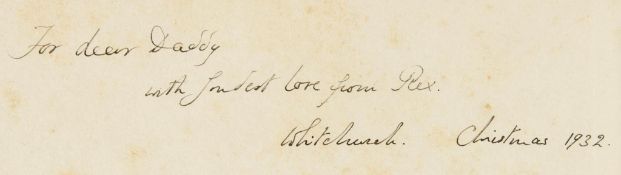 For dear Daddy
with fondest love from Rex.
Whitchurch. Christmas 1932.